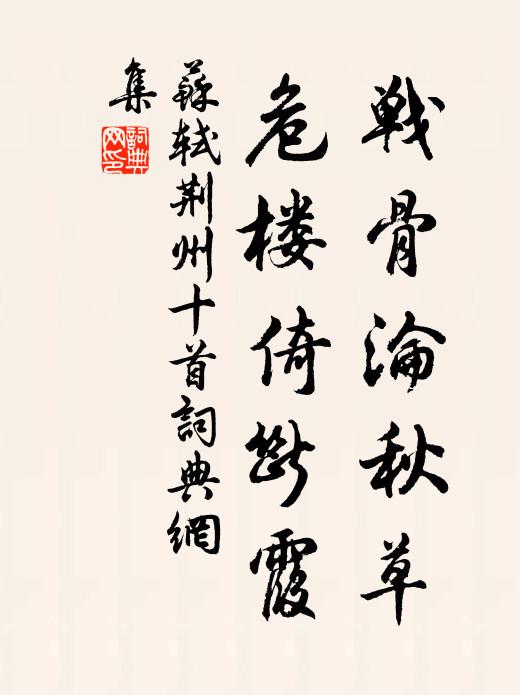 戦骨淪秋草
危楼倚斷霞
蘇軾荆州十首詞典網
集
詞典网印